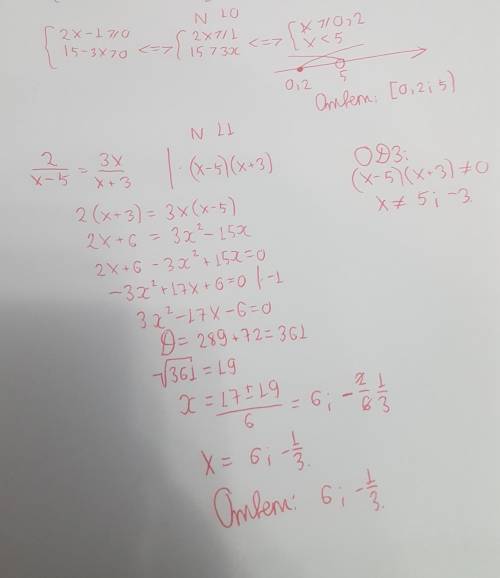 N 10
{2x-1≥0 <=> {2x≥1 <=> {x≥0,2
{15-3x>0 {15>3x {x<5
0,2 5
Ответ: [0,2; 5)
N 11
2/(x-5) = 3x/(x+3) | · (x-5)(x+3)
ОДЗ:
(x-5)(x+3)≠0
x≠ 5; -3.
2(x+3) = 3x(x-5)
2x+6 = 3x²-15x
2x+6-3x²+15x=0
-3x²+17x+6=0 |·-1
3x²-17x-6=0
D= 289+72=361
√361 = 19
x = (17±19)/6 = 6; -2/6 1/3
x = 6; -1/3.
Ответ: 6; -1/3.